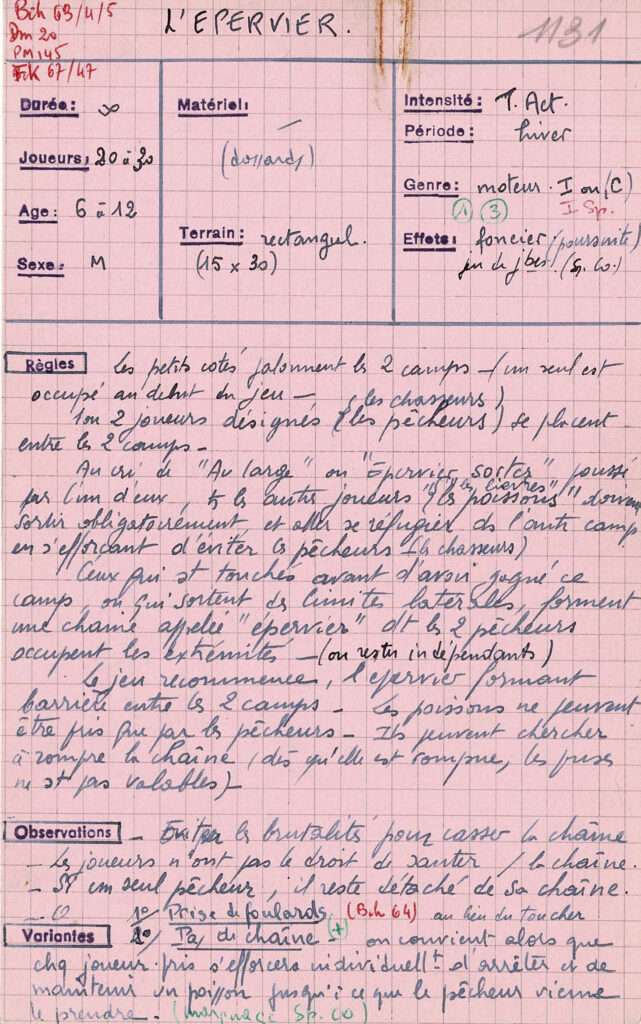 Bch 63/4/5
Dm 20
PM 145
EK 67/47
L'EPERVIER.
1131
Durée: ∞
Joueurs: 20 à 30
Age: 6 à 12
Sexe: M
Matériel: —
(dossards)
Terrain: rectangul.
(15 x 30)
Intensité: T. Act.
Période: hiver
Genre: moteur. I ou (C)
1 3 I Sp.
Effets: foncier. (poursuite)
jeu de jbes. (Sp. Co.)
Règles
Les petits cotés jalonnent les 2 camps - (un seul est
occupé au début du jeu -
(les chasseurs)
1 ou 2 joueurs désignés (les pêcheurs) se placent
entre les 2 camps -
Au cri de "Au large" ou "Épervier, sortez" poussé
"les lièvres"
par l'un d'eux, ts les autres joueurs "les poissons" doivent
sortir obligatoirement, et aller se réfugier ds l'autre camp
en s'efforçant d'éviter les pêcheurs - (les chasseurs)
Ceux qui st touchés avant d'avoir gagné ce
camp, ou qui sortent des limites latérales, forment
une chaîne appelée "épervier" dt les 2 pêcheurs
occupent les extrémités - (ou rester indépendants)
Le jeu recommence, l'épervier formant
barrière entre les 2 camps - Les poissons ne peuvent
être pris que par les pêcheurs - Ils peuvent chercher
à rompre la chaîne (dès qu'elle est rompue, les prises
ne st pas valables) -
Observations - Eviter les brutalités pour casser la chaîne
- Les joueurs n'ont pas le droit de sauter / la chaîne.
- Si un seul pêcheur, il reste détaché de sa chaîne.
1° Prise de foulards (Bch 64) au lieu du toucher
Variantes 2° Pas de chaîne - (+) on convient alors que
chq joueur pris s'efforcera individuellt d'arrêter et de
maintenir un poisson jusqu'à ce que le pêcheur vienne
le prendre. (marquage Sp. Co)